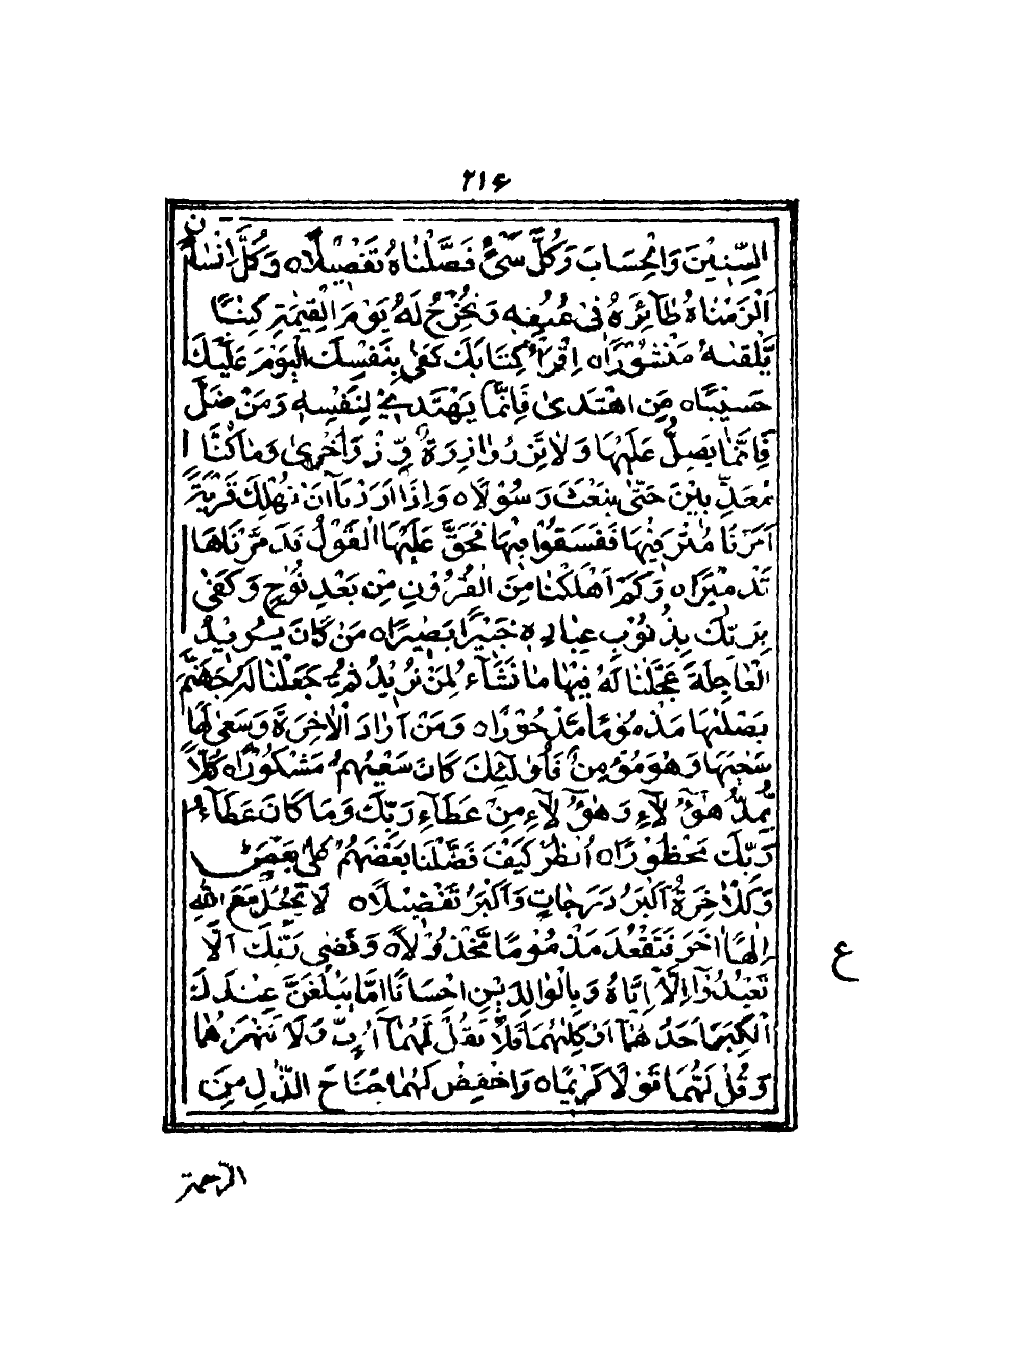 ۲۱۶
السِّنِيْنَ وَالْحِسَابَ وَكُلَّ شَىْءٍ فَصَّلْنَاهُ تَفْصِيْلًا٥ وَكُلَّ اِنْسَانٍ
اَلْزَمْنَاهُ طَآئِرَهُ فِىْ عُنُقِهٖ وَنُخْرِجُ لَهُ يَوْمَ الْقِيٰمَةِ كِتٰبًا
يَّلْقٰىهُ مَنْشُوْرًا٥ اِقْرَأْ كِتَابَكَ كَفٰى بِنَفْسِكَ الْيَوْمَ عَلَيْكَ
حَسِيْبًا٥ مَنِ اهْتَدىٰ فَاِنَّمَا يَهْتَدِىْ لِنَفْسِهٖ وَمَنْ ضَلَّ
فَاِنَّمَا يَضِلُّ عَلَيْهَا وَلَا تَزِرُ وَازِرَةٌ وِّزْرَ اُخْرىٰ وَمَا كُنَّا
مُعَذِّبِيْنَ حَتّىٰ نَبْعَثَ رَسُوْلًا٥ وَاِذَا اَرَدْنَآ اَنْ نُهْلِكَ قَرْيَةً
اَمَرْنَا مُتْرَفِيْهَا فَفَسَقُوْا فِيْهَا فَحَقَّ عَلَيْهَا الْقَوْلُ فَدَمَّرْنَاهَا
تَدْمِيْرًا٥ وَكَمْ اَهْلَكْنَا مِنَ الْقُرُوْنِ مِنْ بَعْدِ نُوْحٍ وَكَفٰى
بِرَبِّكَ بِذُنُوْبِ عِبَادِهٖ خَبِيْرًا بَصِيْرًا٥ مَنْ كَانَ يُرِيْدُ
الْعَاجِلَةَ عَجَّلْنَا لَهُ فِيْهَا مَا نَشَآءُ لِمَنْ نُرِيْدُ ثُمَّ جَعَلْنَا لَهُ جَهَنَّمَ
يَصْلٰىهَا مَذْمُوْمًا مَّدْحُوْرًا٥ وَمَنْ اَرَادَ الْاٰخِرَةَ وَسَعٰى لَهَا
سَعْيَهَا وَهُوَ مُؤْمِنٌ فَاُولٰئِكَ كَانَ سَعْيُهُمْ مَشْكُوْرًا٥ كُلًّا
نُّمِدُّ هٰؤُلَآءِ وَهٰؤُلَآءِ مِنْ عَطَآءِ رَبِّكَ وَمَا كَانَ عَطَآءُ
رَبِّكَ مَحْظُوْرًا٥ اُنْظُرْ كَيْفَ فَضَّلْنَا بَعْضَهُمْ عَلٰى بَعْضٍ
وَلَلْاٰخِرَةُ اَكْبَرُ دَرَجَاتٍ وَاَكْبَرُ تَفْضِيْلًا٥ لَا تَجْعَلْ مَعَ اللهِ
اِلٰهًا اٰخَرَ فَتَقْعُدَ مَذْمُوْمًا مَّخْذُوْلًا٥ وَقَضٰى رَبُّكَ اَلَّا
تَعْبُدُوْآ اِلَّآ اِيَّاهُ وَبِالْوَالِدَيْنِ اِحْسَانًا اِمَّا يَبْلُغَنَّ عِنْدَكَ
الْكِبَرَ اَحَدُهُمَآ اَوْ كِلٰهُمَا فَلَا تَقُلْ لَهُمَآ اُفٍّ وَلَا تَنْهَرْهُمَا
وَقُلْ لَهُمَا قَوْلًا كَرِيْمًا٥ وَاخْفِضْ لَهُمَا جَنَاحَ الذُّلِّ مِنَ
ع
الرَّحْمَةِ